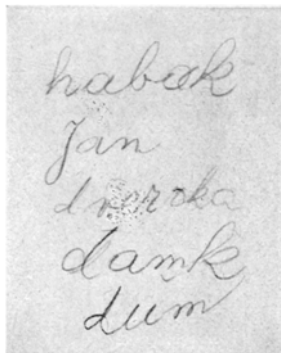 habak
Jan
dveroka
damk
dum